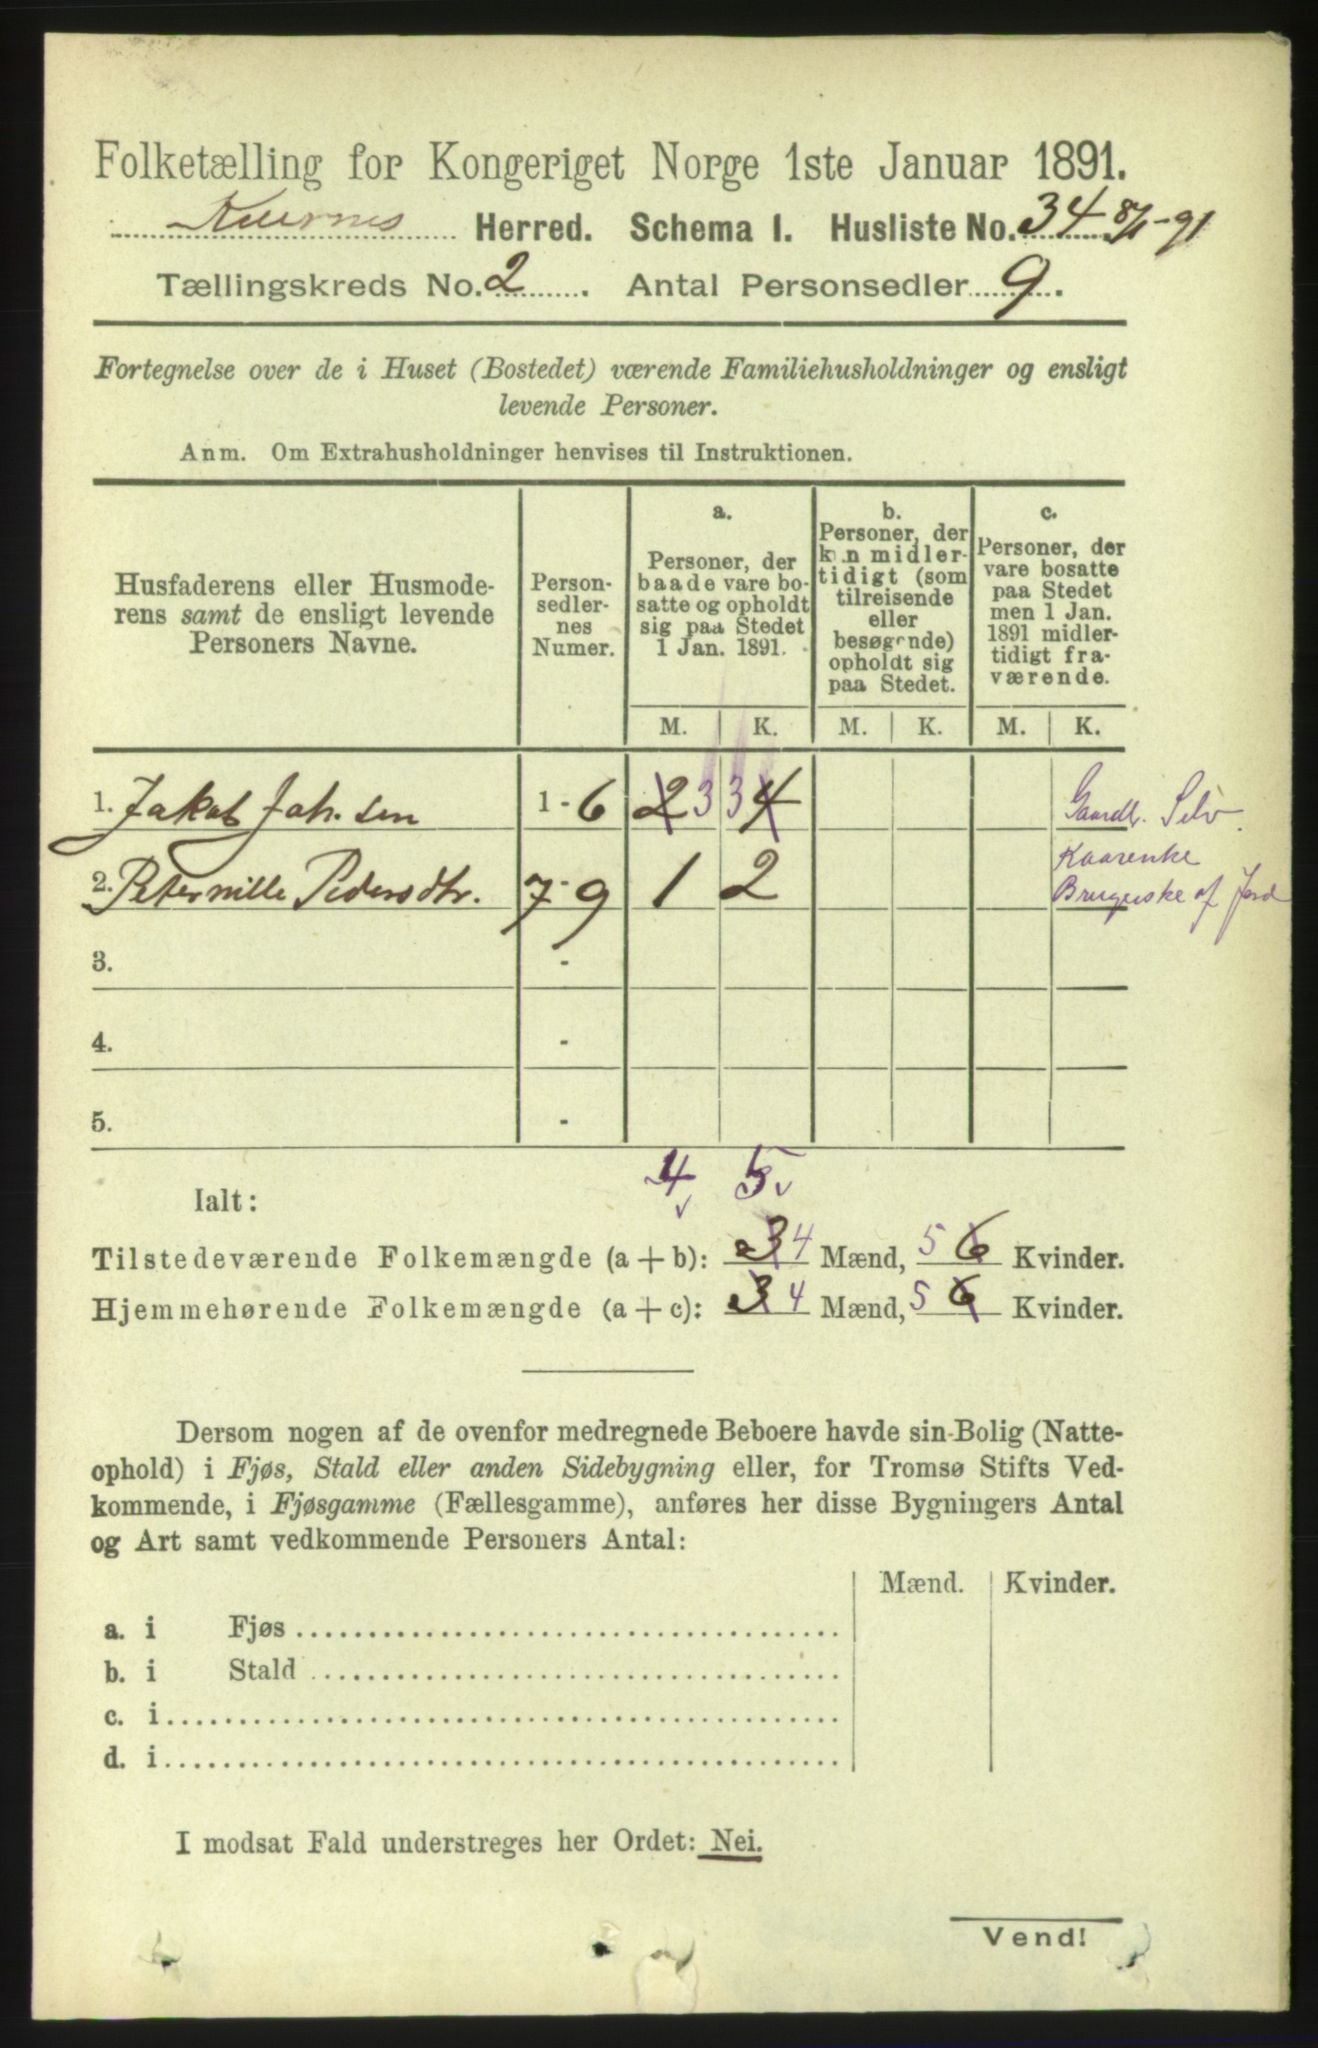 Folketælling for Kongeriget Norge 1ste Januar 1891.
Kvernes Herred. Schema I. Husliste No. 34 8/1-91
Tællingskreds No. 2. Antal Personsedler 9.
Fortegnelse over de i Huset (Bostedet) værende Familiehusholdninger og ensligt
levende Personer.
Anm. Om Extrahusholdninger henvises til Instruktionen.
Husfaderens eller Husmode-
rens samt de ensligt levende
Personers Navne.
Person-
sedler-
nes
Numer.
a.
Personer, der
baade vare bo-
satte og opholdt
sig paa Stedet
1 Jan. 1891.
b.
Personer, der
kun midler-
tidigt (som
tilreisende
eller
besøgende)
opholdt sig
paa Stedet.
c.
Personer, der
vare bosatte
paa Stedet
men 1 Jan.
1891 midler-
tidigt fra-
værende.
M. K. M. K. M. K.
1. Jakob Joh. sen 1 - 6 2 3 3 4 Gaardb. Selv.
2. Peternille Pedersdtr. 7 - 9 1 2 Kaarenke
Brugerske af Jord
3. -
4. -
5. -
4 5
Ialt:
Tilstedeværende Folkemængde (a + b): 3 4 Mænd, 5 6 Kvinder.
Hjemmehørende Folkemængde (a + c): 3 4 Mænd, 5 6 Kvinder.
Dersom nogen af de ovenfor medregnede Beboere havde sin Bolig (Natte-
ophold) i Fjøs, Stald eller anden Sidebygning eller, for Tromsø Stifts Ved-
kommende, i Fjøsgamme (Fællesgamme), anføres her disse Bygningers Antal
og Art samt vedkommende Personers Antal:
Mænd. Kvinder.
a. i Fjøs
b. i Stald
c. i
d. i
I modsat Fald understreges her Ordet: Nei.
Vend!